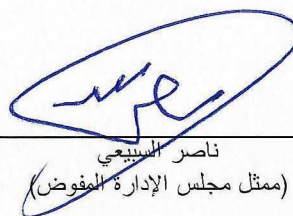 ناصر السبيعي
(ممثل مجلس الإدارة المفوض)